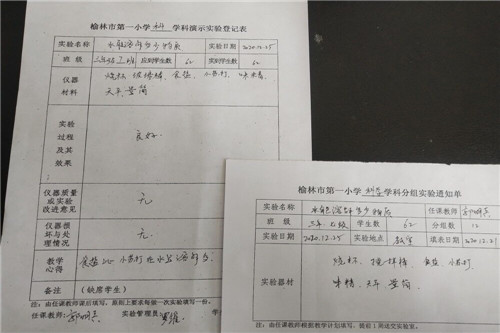 榆林市第一小学 科 学科演示实验登记表
实验名称 水能溶解多少物质 实验日期 2020.12.25
班级 应到学生数 62 实到学生数 62
仪器材料 烧杯 玻璃棒、食盐、小苏打、味精
天平、量筒
实验过程及其效果 良好.
仪器质量或实验改进意见 无
仪器损坏与处理情况 无
教学心得 食盐比小苏打在水里溶解多.
备注 （缺席学生）
注：由任课教师课后填写，原则上要求每做一次实验填写一份。
任课教师： 实验管理员：
榆林市第一小学 科学 学科分组实验通知单
实验名称 水能溶解多少物质 任课教师
班级 三年 七班 学生数 62 分组数 12
实验日期 2020.12.25 实验地点 教室 填表日期 12.21
实验器材 烧杯、搅拌棒、食盐、小苏打、
味精、天平、量筒
注：由任课教师根据教学计划填写，提前1周送交实验室。